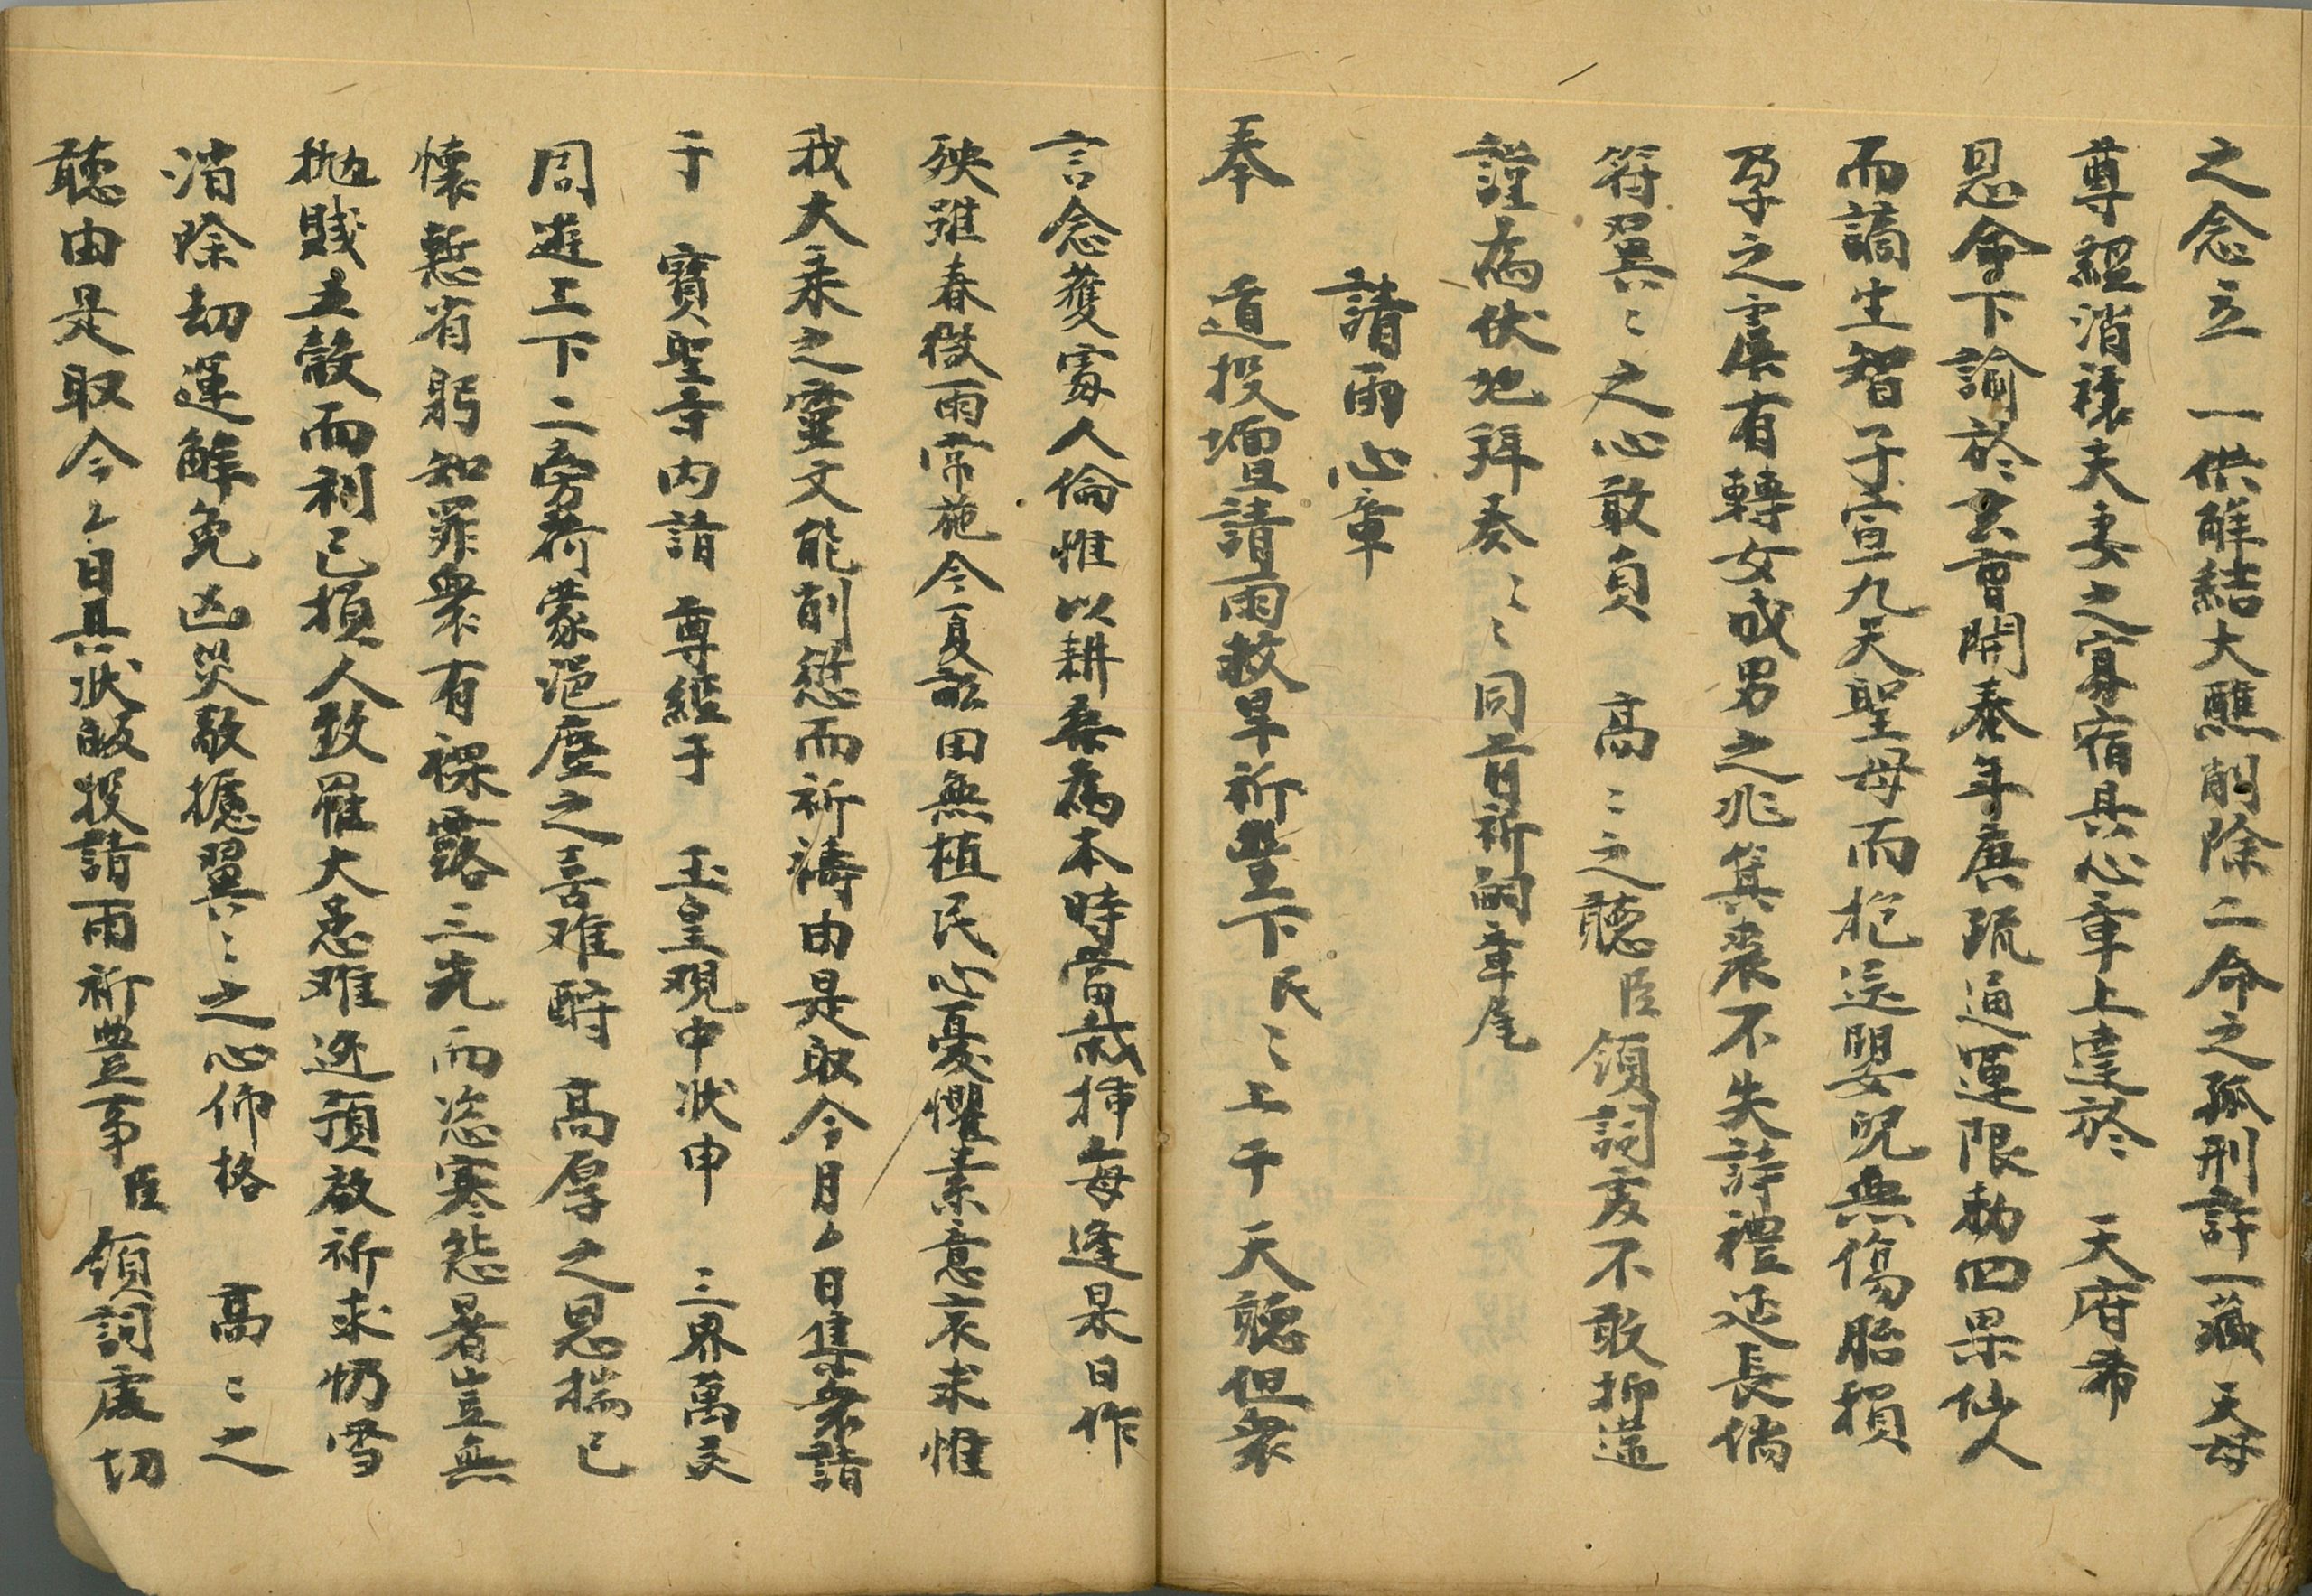 之念立一供解結大醮削除二命之孤刑許一藏天母
尊經消禳夫妻之寡宿具心章上達於 天府希
恩命下諭於玄曹開泰年庚疏通運限勅四果仙人
而謫生智子宣九天聖母而抱送嬰兒無傷胎損
孕之虞有轉女成男之兆箕裘不失詩禮延長倘
符翼〻之心敢負 高〻之聽臣領詞虔不敢抑遺
謹為伏地拜奏〻〻同前祈嗣章尾
請雨心章
奉 道投壇請雨救旱祈豐下民〻上千 天聽但衆
言念蓫寡人倫惟以耕桒為本時當栽挿每逢杲日作
殃雖春微雨常施今夏設田無植民心憂懼業意哀求惟
我大乘之靈文能削愆而祈禱由是取今月厶日集衆詣
于 寶聖寺内請 尊經于 玉皇观中状申 三界萬灵
周遊上下二旁荷蒙浥塵之喜难酧 高厚之恩揣己
懐慙省躬知罪衆有裸露三光而恣寒怨暑豈無
抛賎五穀而利己損人致罹大恙难逃預啟祈求仍雪
消除刼運解免凶災敬攄翼〻之心佈格 高〻之
聽由是取今厶日具状皈投請雨祈豊事臣領詞虔切